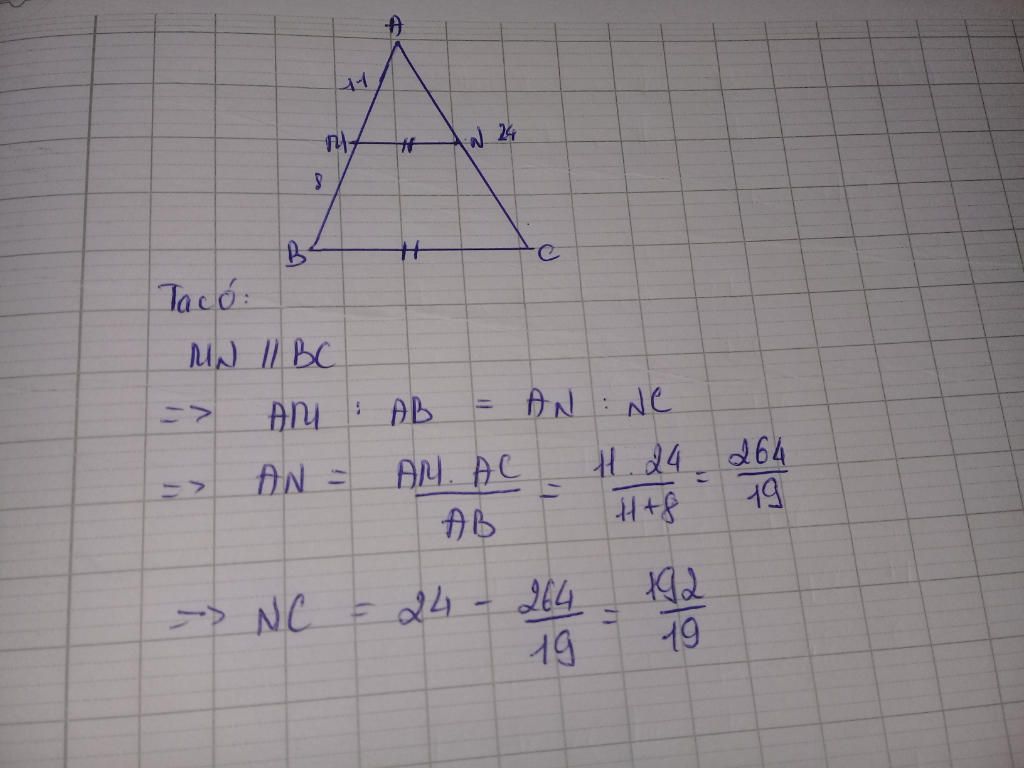 A
11
M N 24
8
B C
Ta có:
MN // BC
=> AM : AB = AN : NC
=> AN = AM . AC / AB = 11 . 24 / 11 + 8 = 264 / 19
=> NC = 24 - 264 / 19 = 192 / 19